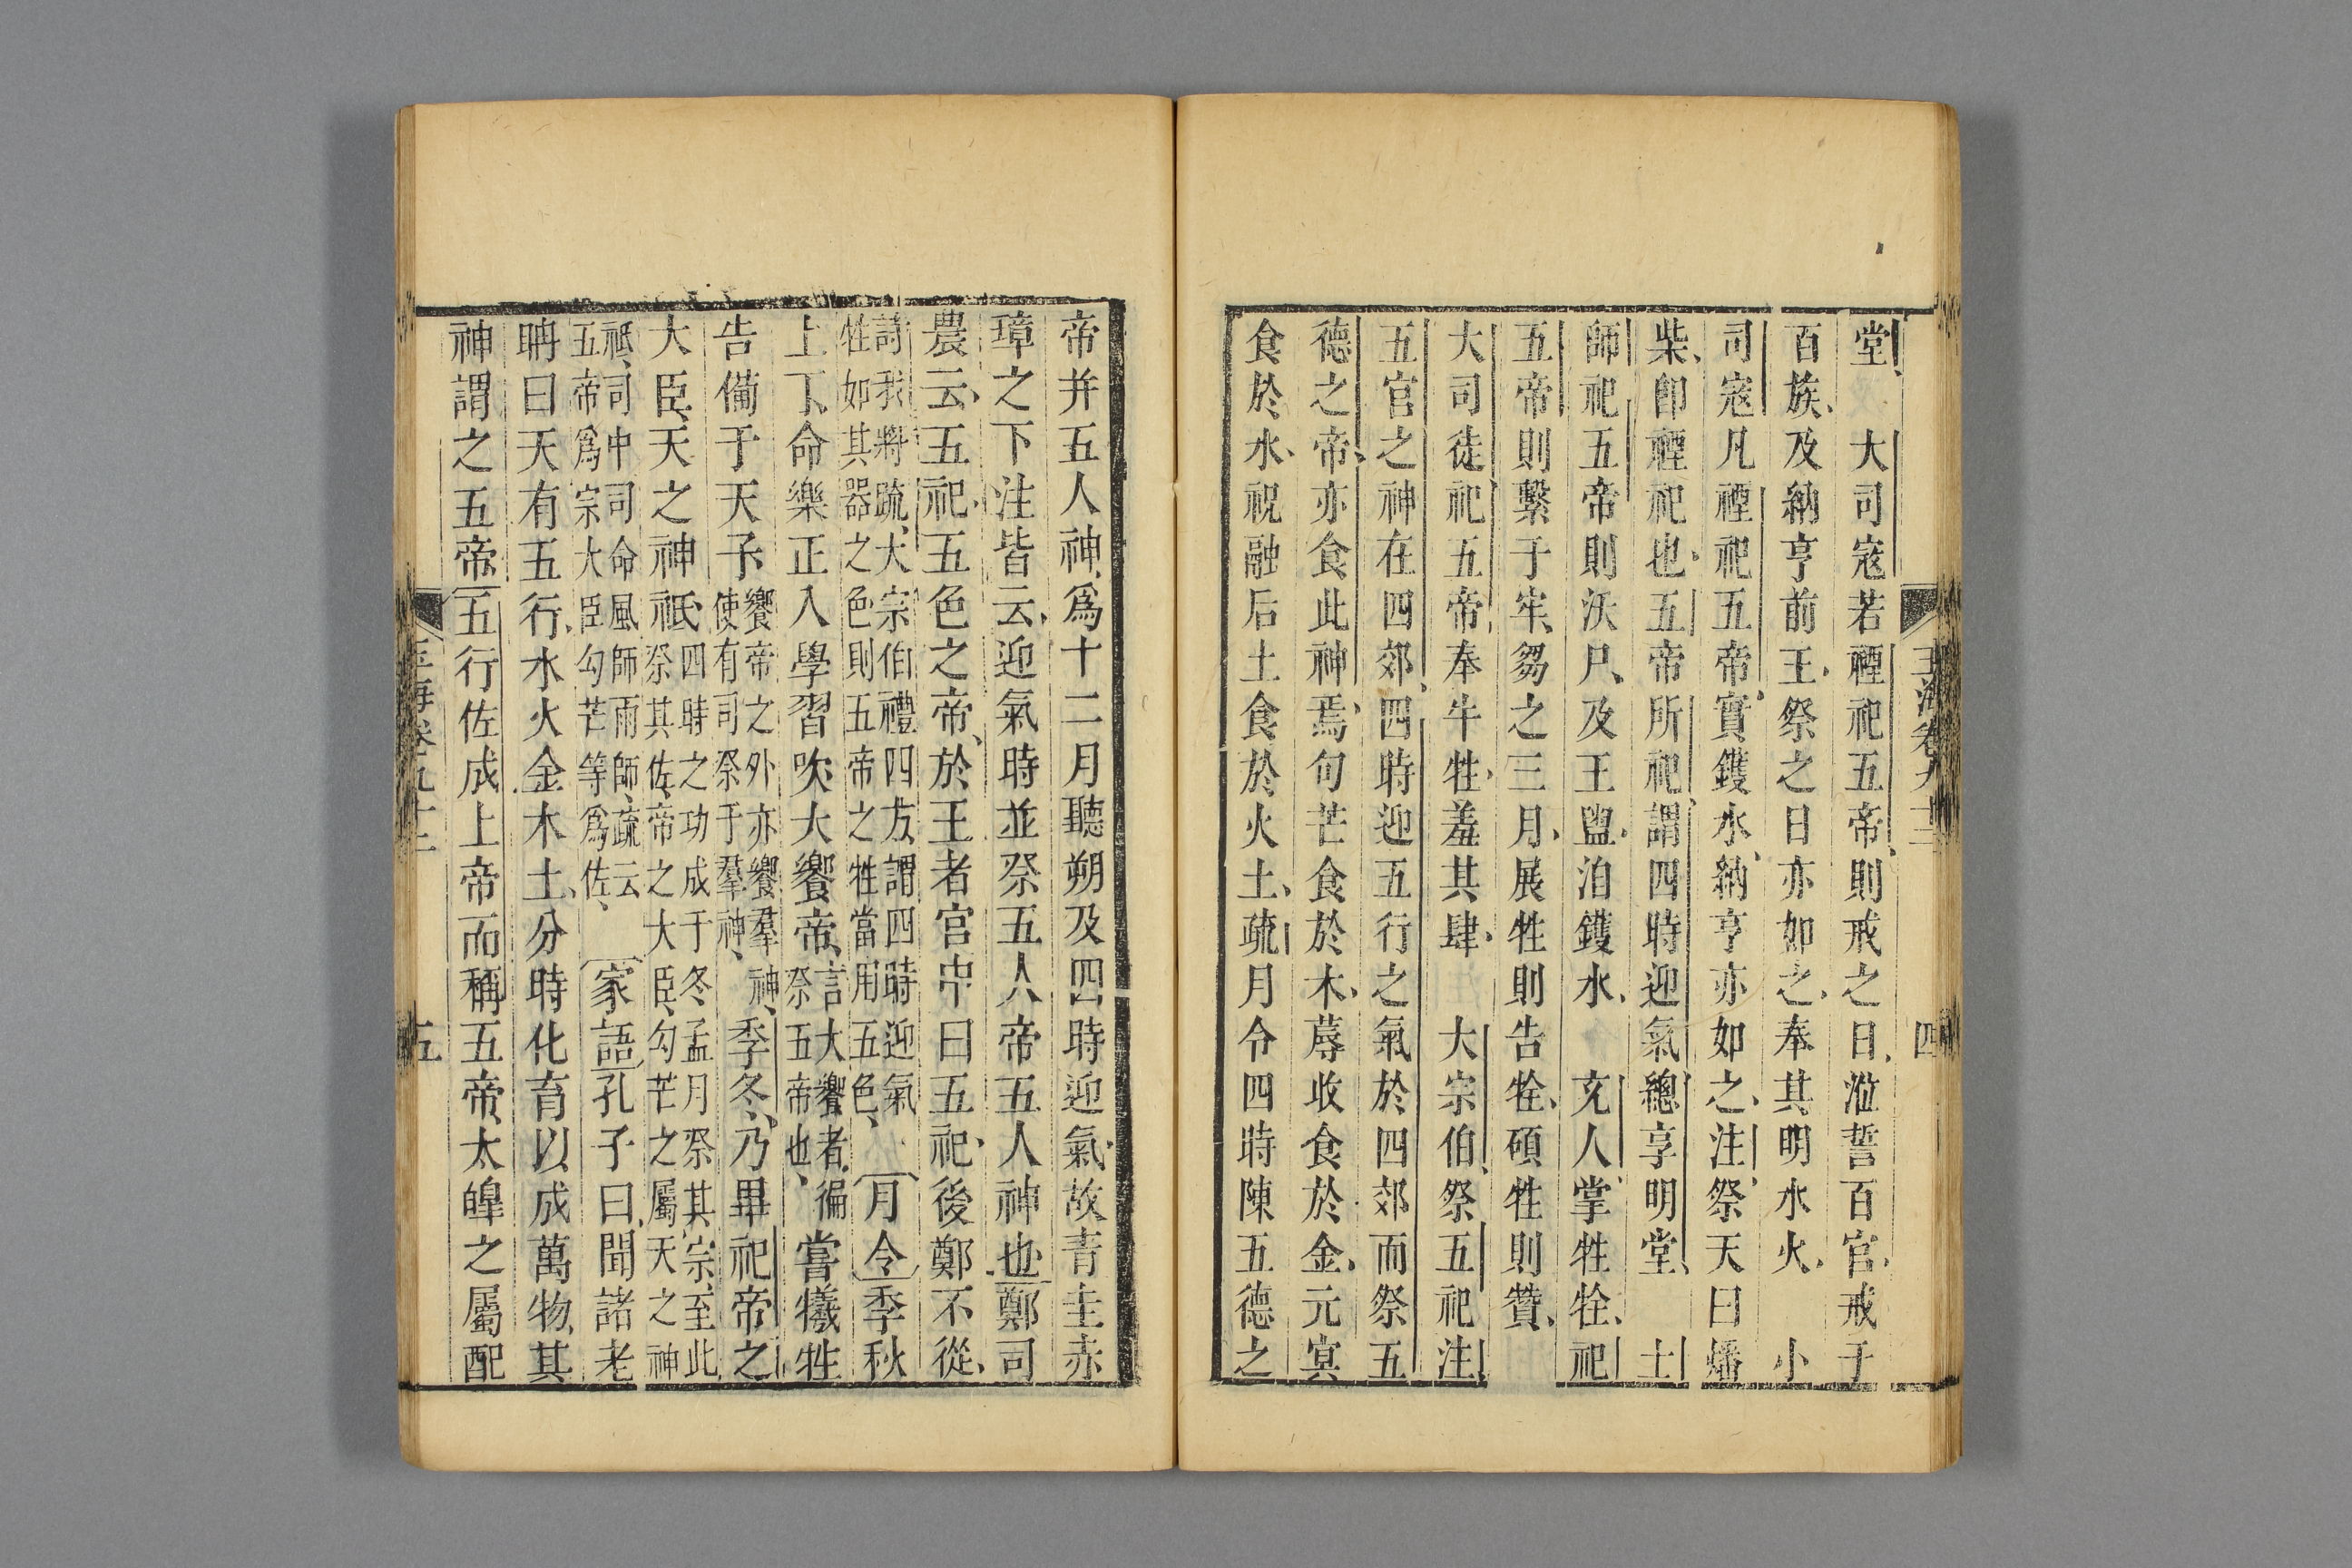 玉海卷九十三 四
堂 大司寇若禋祀五帝則戒之日涖誓百官戒于
百族及納亨前王祭之日亦如之奉其明水火 小
司寇凡禋祀五帝實鑊水納亨亦如之注祭天曰燔
柴卽禋祀也五帝所祀謂四時迎氣總享明堂 士
師祀五帝則沃尸及王盥洎鑊水 充人掌牲牷祀
五帝則繫于牢芻之三月展牲則告牷碩牲則贊
大司徒祀五帝奉牛牲羞其肆 大宗伯祭五祀注
五官之神在四郊四時迎五行之氣於四郊而祭五
德之帝亦食此神焉句芒食於木蓐收食於金元冥
食於水祝融后土食於火土疏月令四時陳五德之
帝并五人神爲十二月聽朔及四時迎氣故青圭赤
璋之下注皆云迎氣時並祭五人帝五人神也鄭司
農云五祀五色之帝於王者宮中曰五祀後鄭不從
詩我將疏大宗伯禮四方謂四時迎氣
牲如其器之色則五帝之牲當用五色
月令季秋
上丁命樂正入學習吹大饗帝
言大饗者徧
祭五帝也
嘗犧牲
告備于天子
饗帝之外亦饗羣神
使有司祭于羣神
季冬乃畢祀帝之
大臣天之神祇
四時之功成于冬孟月祭其宗至此
祭其佐帝之大臣勾芒之屬天之神
祇司中司命風師雨師疏云
五帝爲宗大臣勾芒等爲佐
家語孔子曰聞諸老
聃曰天有五行水火金木土分時化育以成萬物其
神謂之五帝五行佐成上帝而稱五帝太皥之屬配
玉海卷九十三 五